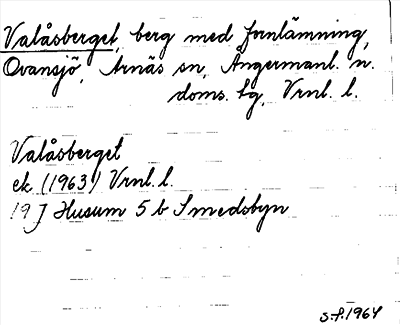 Valåsberget, berg med fornlämning,
Ovansjö, Arnäs sn, Ångermanl. n.
doms. hg, Vrnl. l.
Valåsberget
ek (1963) Vrnl. l.
19 J Husum 5 b Smedsbyn
S.F. 1964